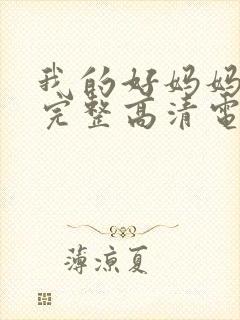 我的好妈妈
完整高清電
薄涼夏